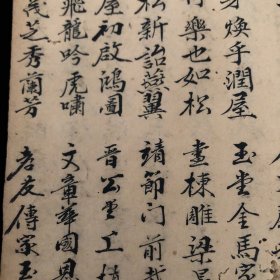 煥乎潤屋
樂也如松
松新詒燕翼
屋初啟鴻圖
飛龍吟虎嘯
芝秀蘭芳
玉堂金馬家
畫棟雕梁
靖節门前
晉公堂
文章華國
孝友傳家玉